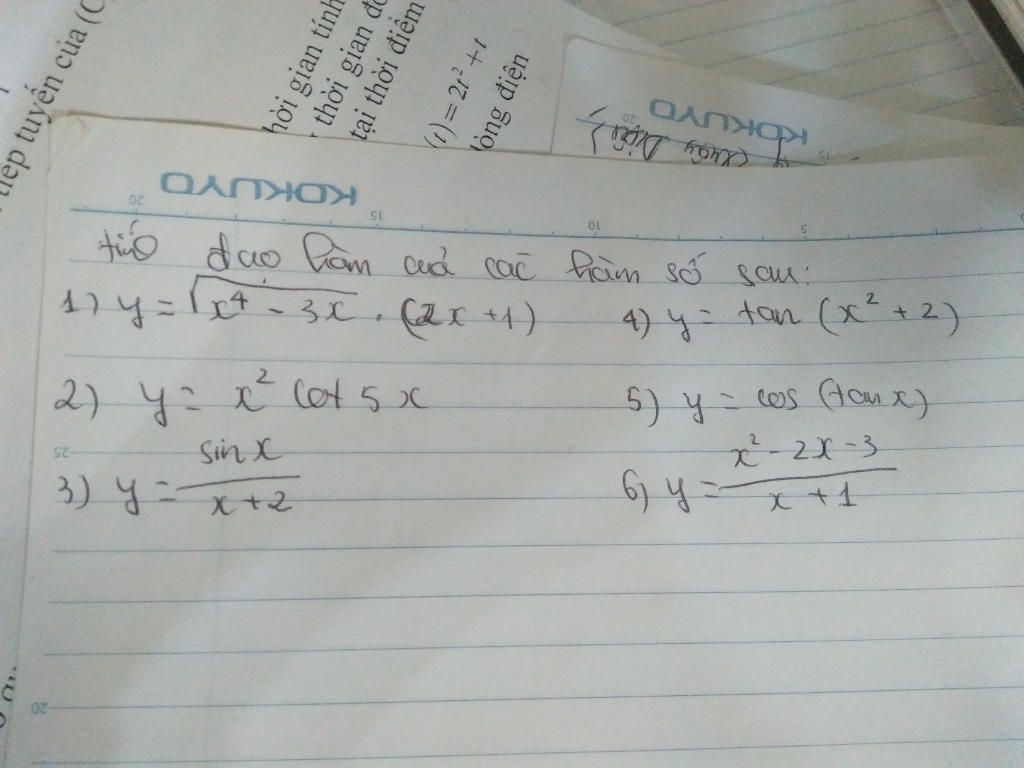 tiếp tuyến của (C
hời gian tính
thời gian đo
tại thời điểm
(t) = 2t² + t
lòng điện
KOKUYO
20
15
KOKUYO
20
15
10
5
đạo hàm của các hàm số sau:
1) y = √(x⁴ - 3x) . (2x + 1)
4) y = tan (x² + 2)
2) y = x² cot 5x
5) y = cos (tan x)
25
3) y = sin x / x + 2
6) y = x² - 2x - 3 / x + 1
20